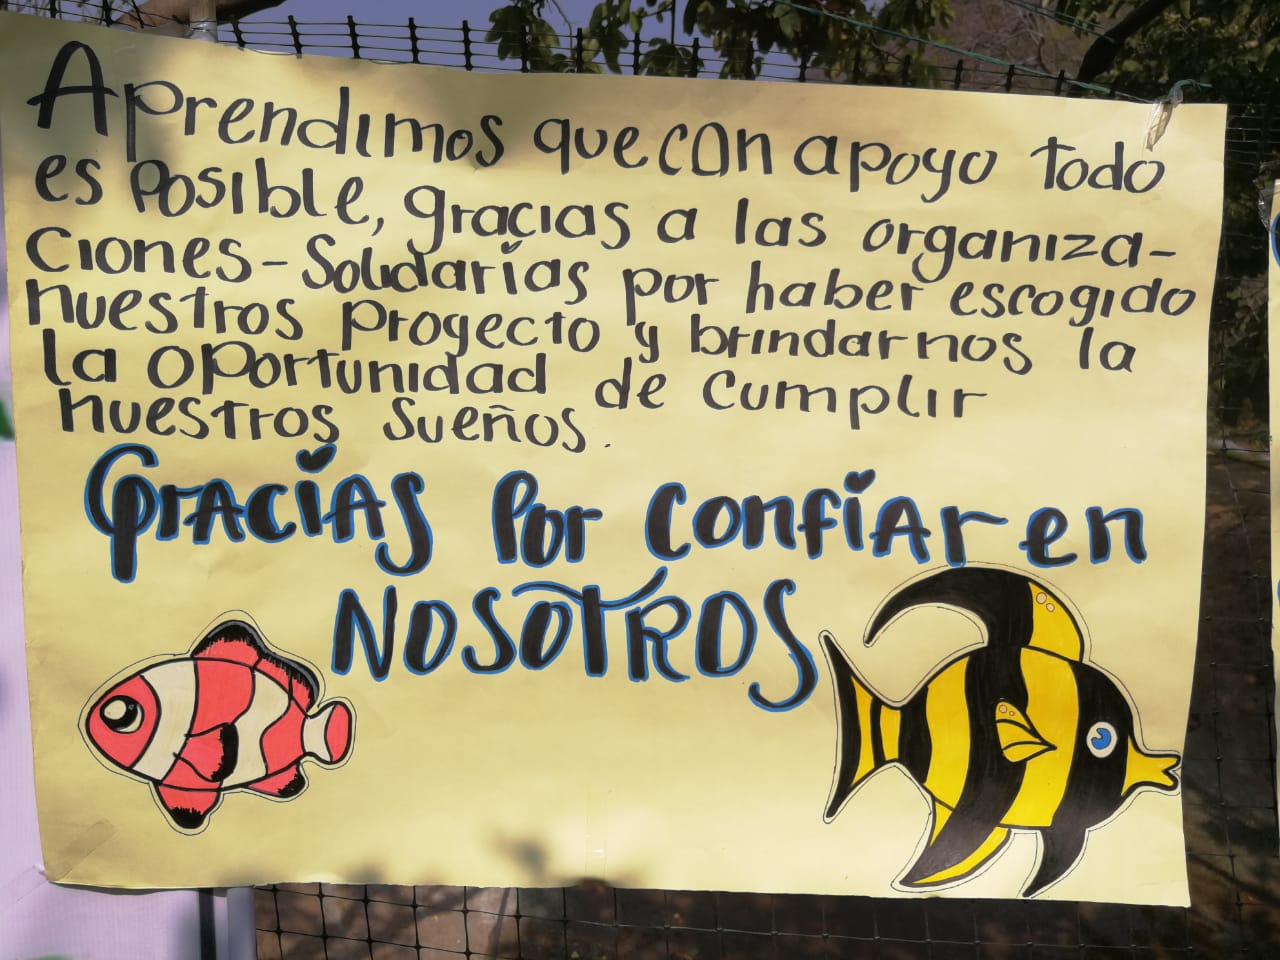 Aprendimos que con apoyo todo
es posible, gracias a las organiza-
ciones-Solidarías por haber escogido
nuestros proyecto y brindarnos la
la oportunidad de cumplir
nuestros sueños.
Gracias por confiar en
NOSOTROS